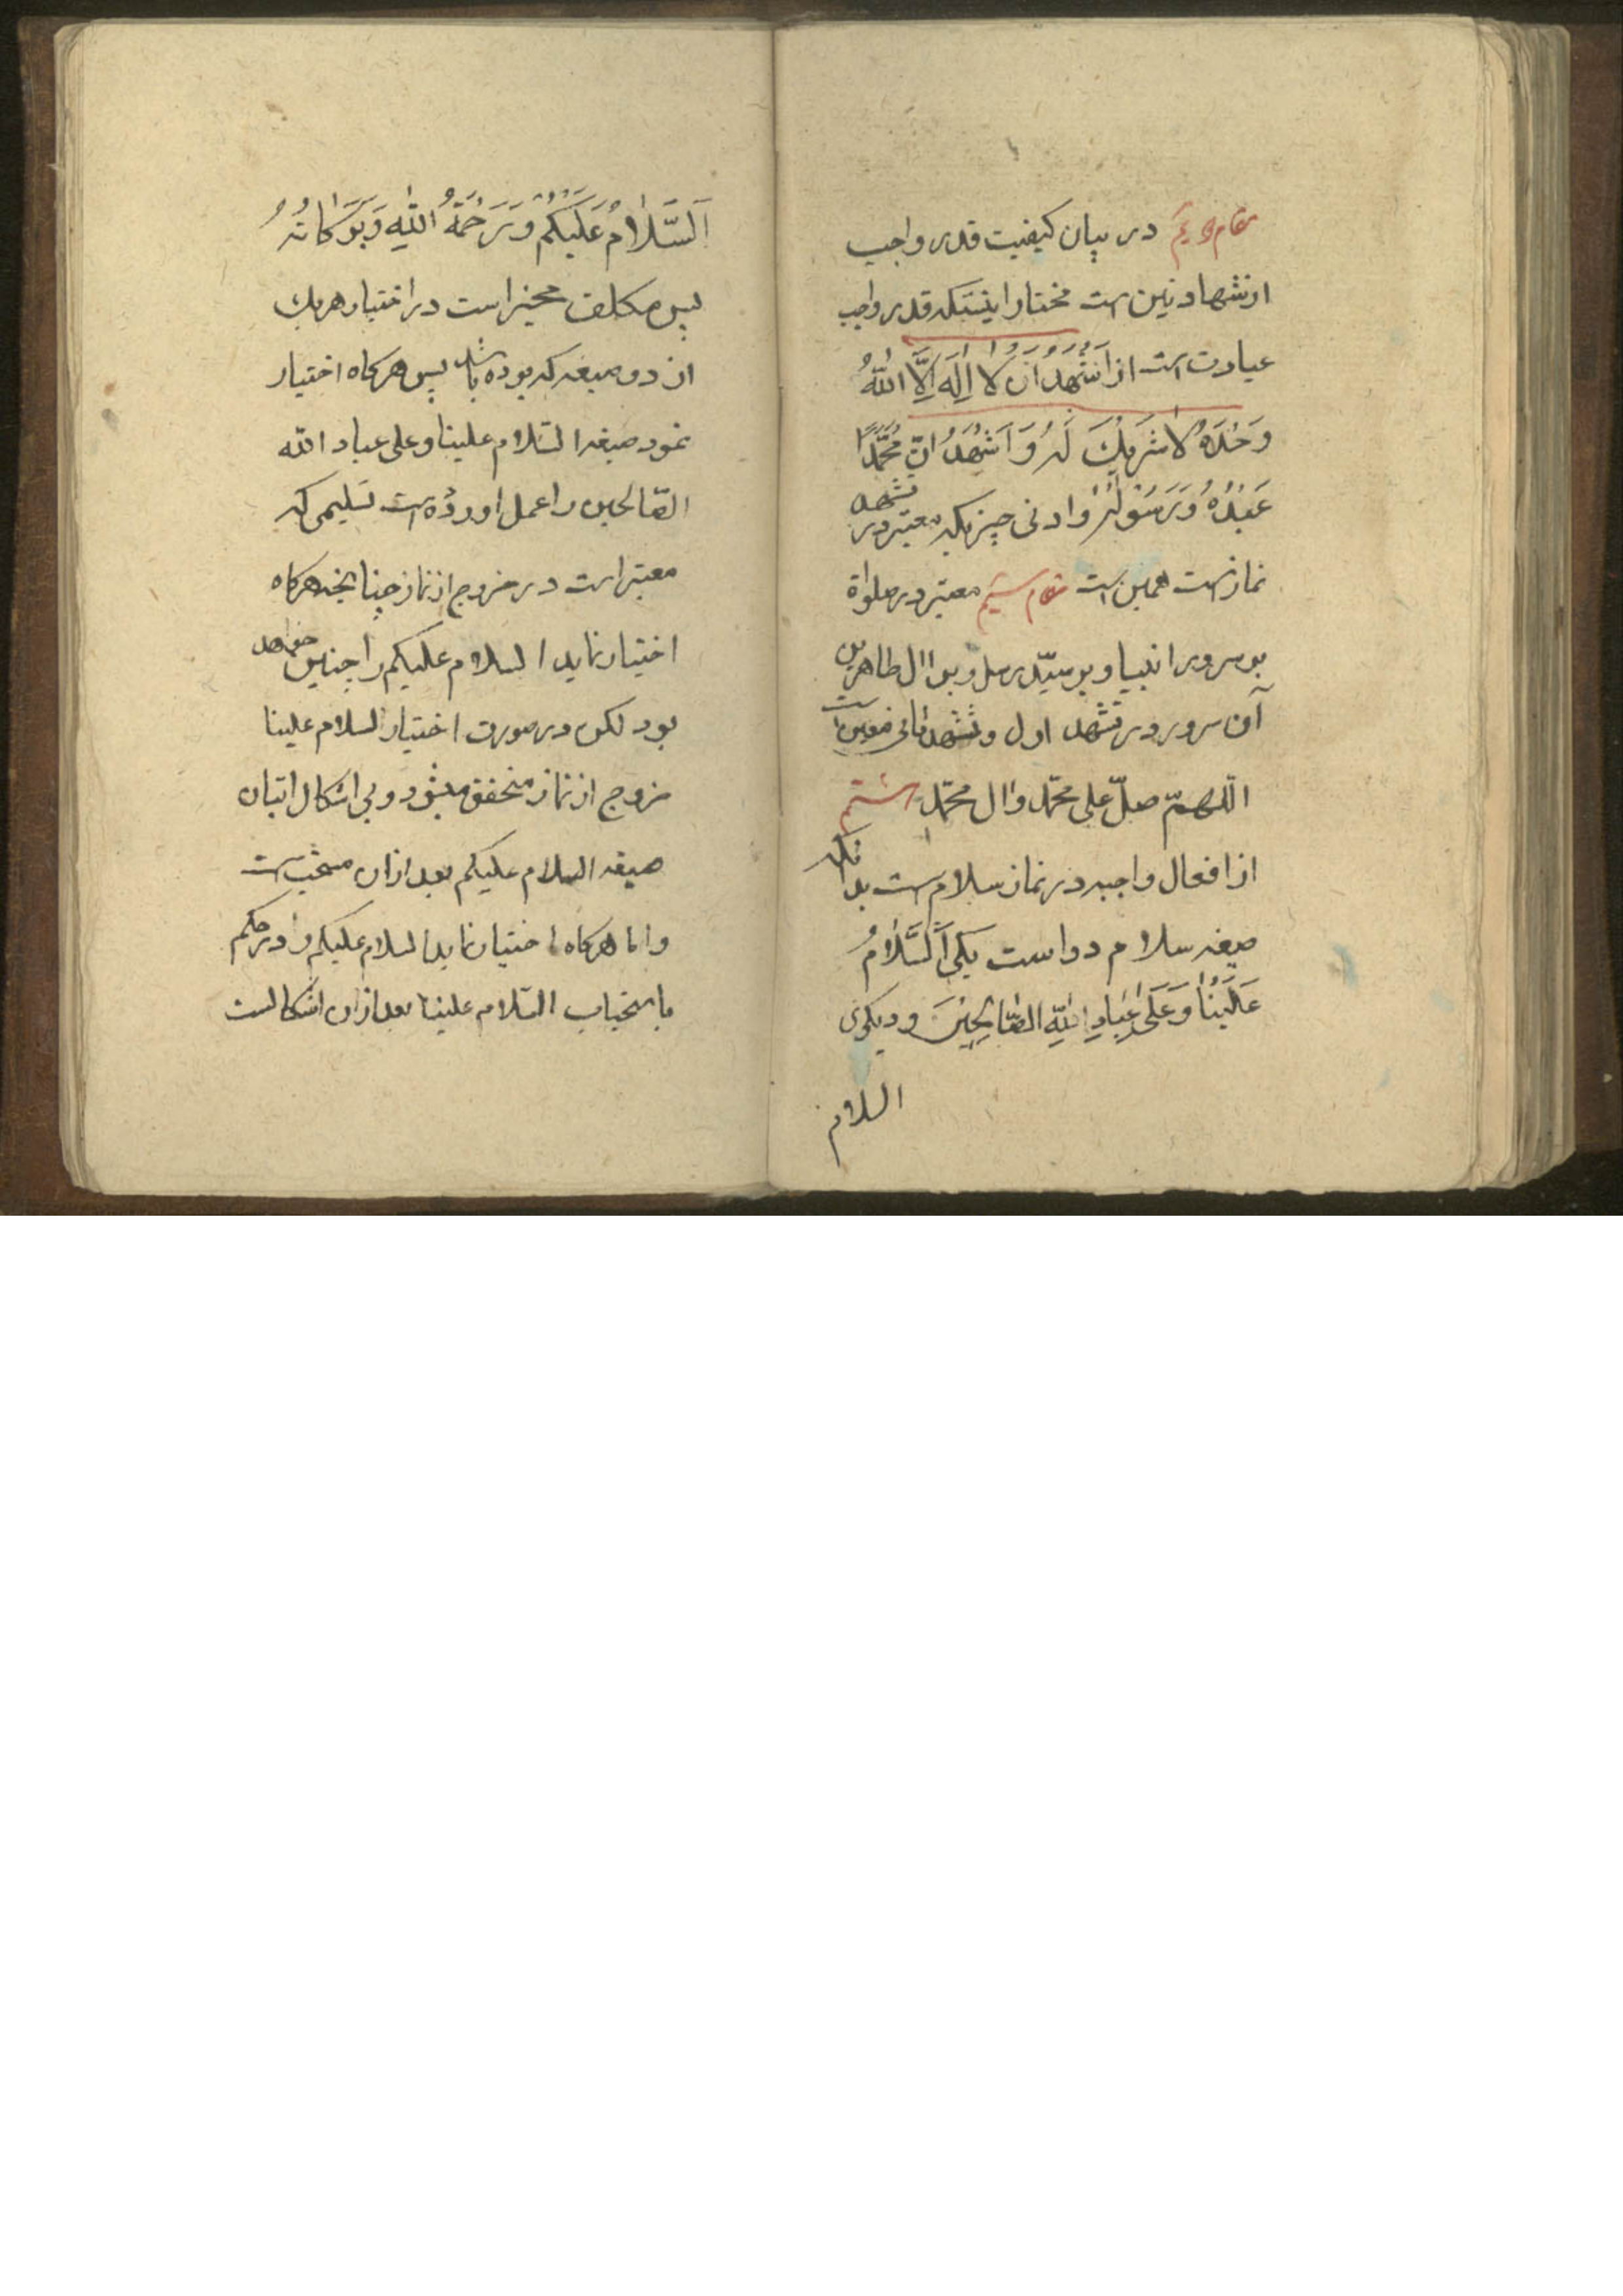 مقام دویم در بیان کیفیت قدر واجب
از شهادتین است مختار اینستکه قدر واجب
عبارت است از اَشْهَدُ اَنْ لا اِلٰهَ اِلَّا اللّٰهُ
وَحْدَهُ لا شَرِیْكَ لَهُ وَ اَشْهَدُ اَنَّ مُحَمَّدًا
عَبْدُهُ وَ رَسُوْلُهُ و ادنی چیزیکه معتبر در تشهد
نماز است همین است مقام سیم معتبر در صلواة
بر سرور انبیا و بر سیّد رسل و بر اٰل طاهرین
آن سرور در تشهد اول و تشهد ثانی
اللّهمّ صلّ علی محمّد و اٰل محمّد هشتم
از افعال واجبه در نماز سلام است بدانکه
صیغه سلام دو است یکی اَلسَّلامُ
عَلَیْنا وَ عَلیٰ عِبادِ اللّٰهِ الصّالِحِیْنَ و دیکری
السلام
اَلسَّلامُ عَلَیْکُمْ وَ رَحْمَةُ اللّٰهِ وَ بَرَکاتُهُ
پس مکلف مخیر است در اختیار هر یك
از دو صیغه که بوده باشد پس هرکاه اختیار
نمود صیغه السّلام علینا و علی عباد الله
الصّالحین را عمل اورده است تسلیمی که
معتبر است در خروج از نماز چنانچه هرکاه
اختیار نماید السلام علیکم را چنین خواهد
بود لکن در صورت اختیار السلام علینا
خروج از نماز متحقق میشود و بی اشکال اتیان
صیغه السلام علیکم بعد از ان مستحب است
و اما هرکاه اختیار نماید السلام علیکم را در حکم
باستحباب السّلام علینا بعد از ان اشکالست